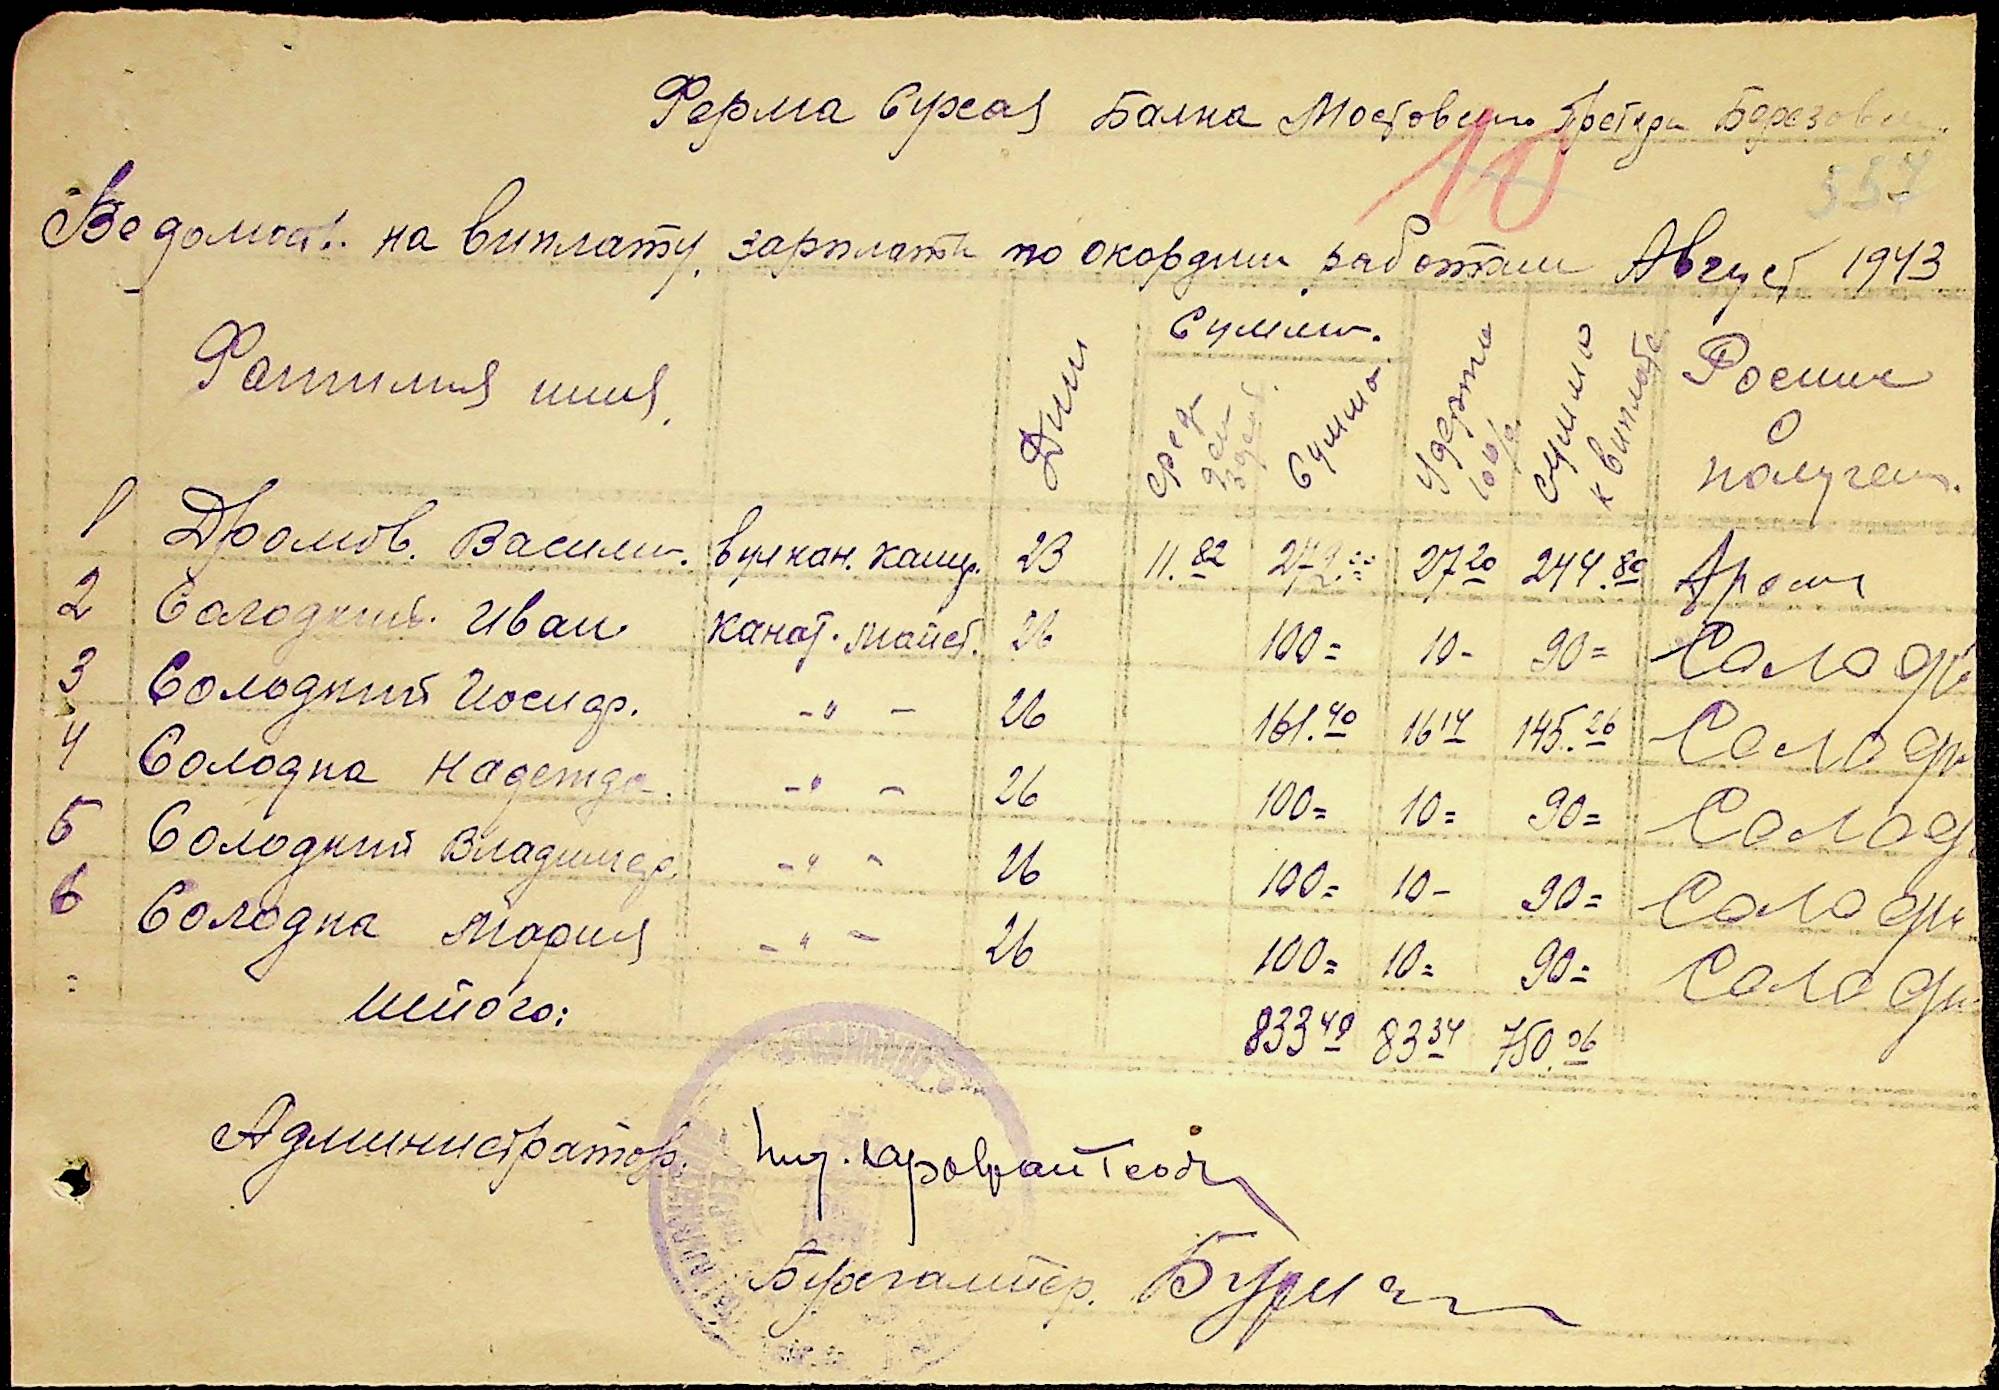 Ферма Сухая Балка Мостовски Претури Березовск.
10
557
Ведомость на виплату зарплати по окордним работам Август 1943
Фамилия имя. Дни Сумма. Удержано 10% Сумма к виплате Росписка о получен.
Сумма
1 Дромов. Васили. вулкан. камер. 23 11.82 272.00 27 20 244.80 Дром
2 Солодкий. Иван канат. майст. 26 100= 10- 90= Солодк
3 Солодкий Иосиф. -"- 26 161.40 16 14 145.26 Солодк
4 Солодка Надежда. -"- 26 100= 10= 90= Солод
5 Солодкий Владимер. -"- 26 100= 10- 90= Солодк
6 Солодка Мария -"- 26 100= 10= 90= Солодк
Итого: 833 40 83 34 750.06
Администратор.
Бухгалтер.